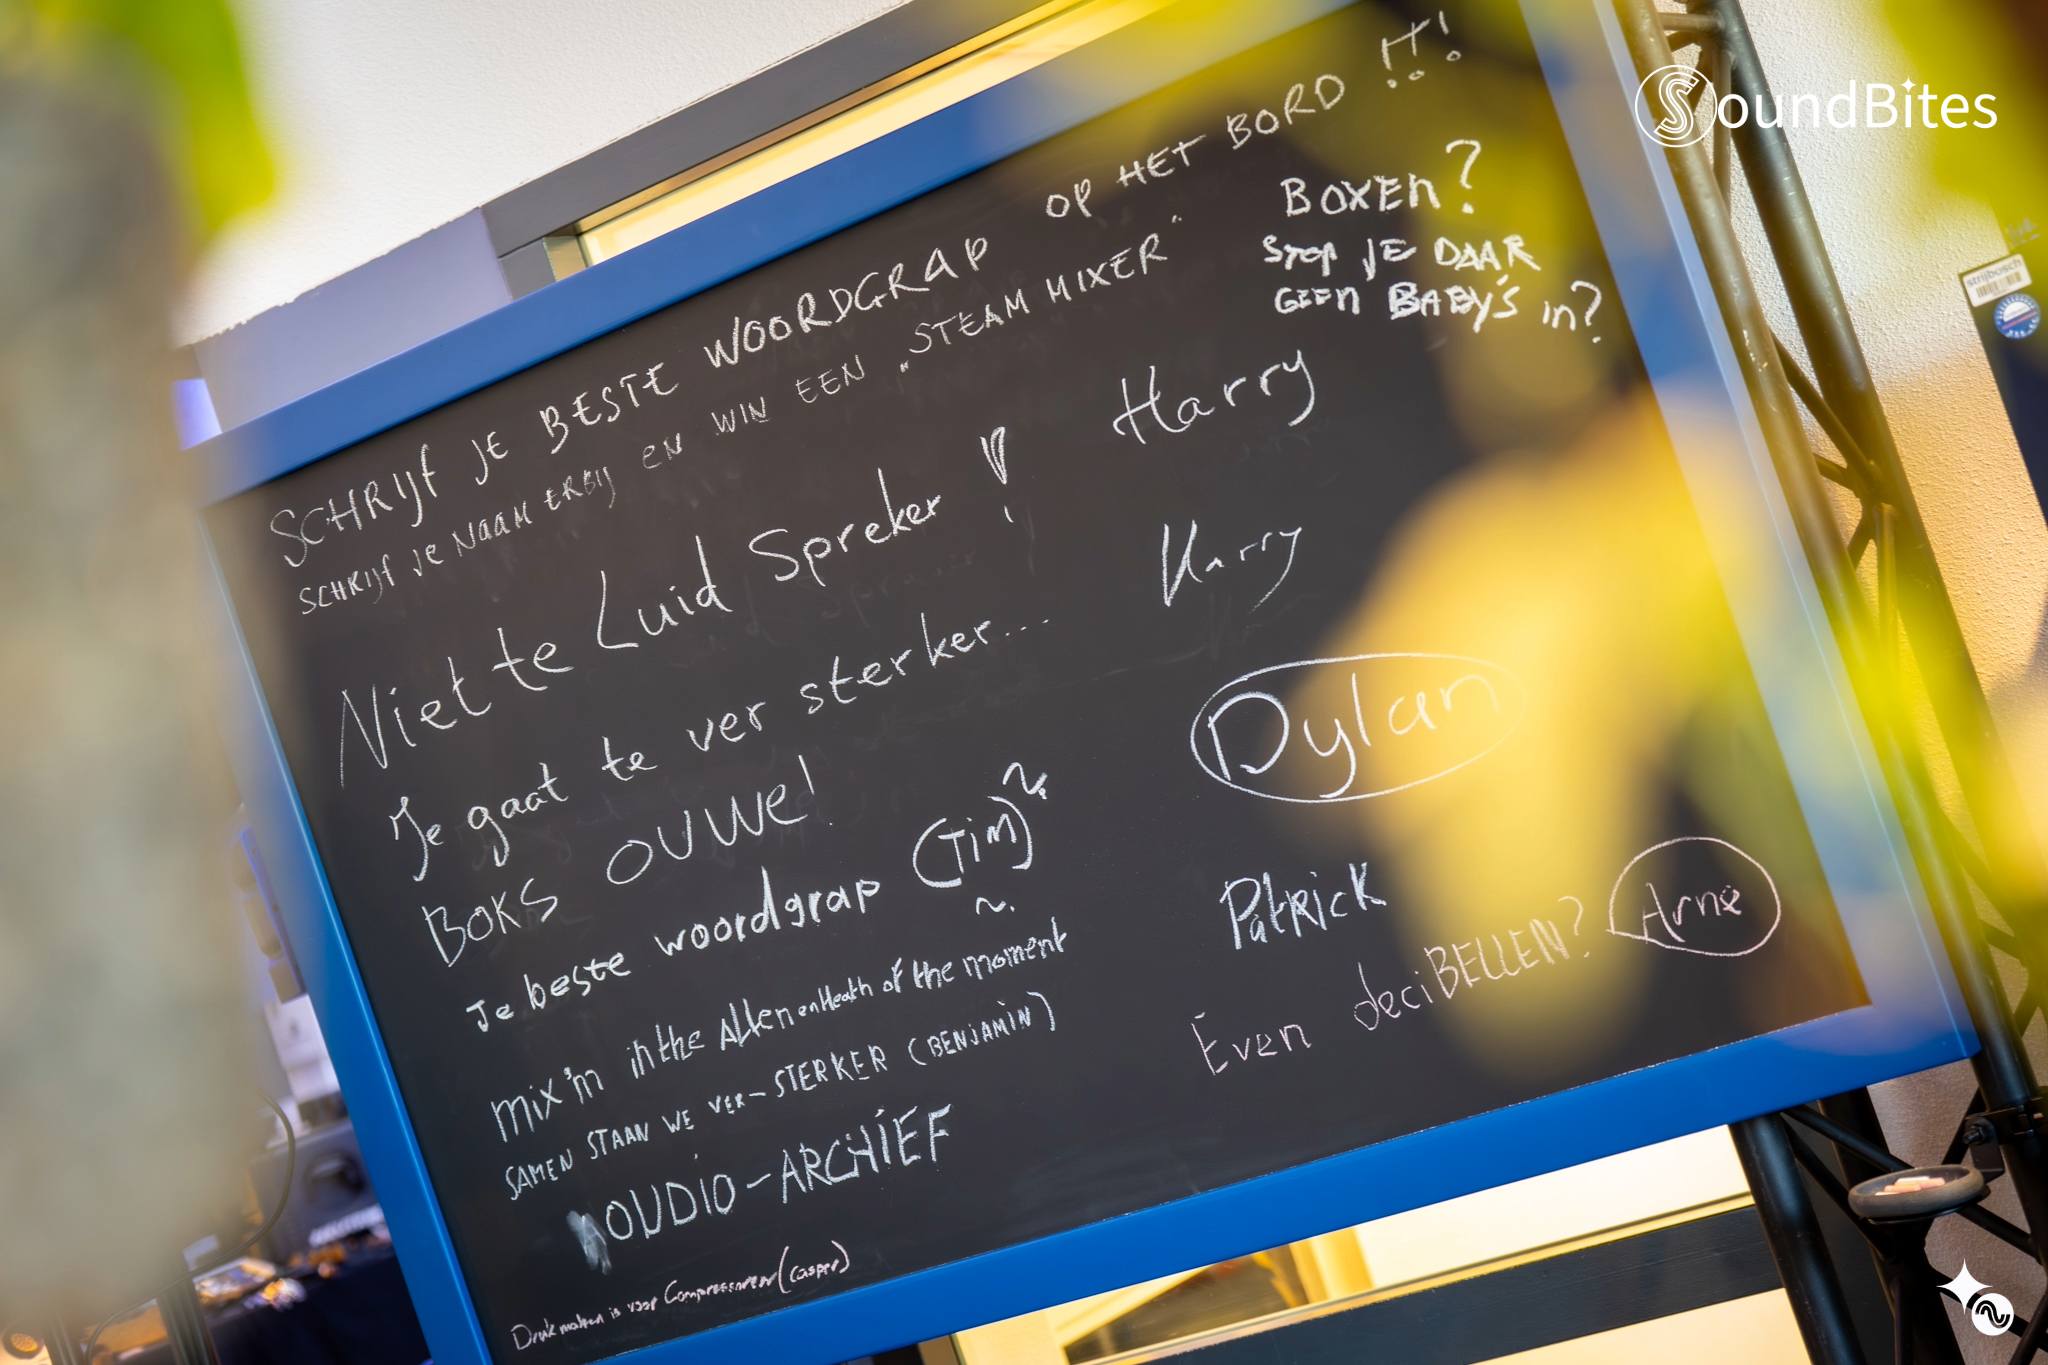 SCHRIJF JE BESTE WOORDGRAP OP HET BORD !!!
SCHRIJF JE NAAM ERBIJ EN WIN EEN „STEAM MIXER"
BOXEN?
STOP JE DAAR
GEEN BABY'S in?
Niet te Luid Spreker ! Harry
Je gaat te ver sterker... Harry
BOKS OUWE! Dylan
Je beste woordgrap (Tim)
mix'm in the Alten en Heath of the moment Patrick
SAMEN STAAN WE VER-STERKER (BENJAMIN)
Even deciBELLEN? Arne
OUDIO-ARCHIEF
Druk maken is voor Compressoren (Casper)
SoundBites
strijbosch